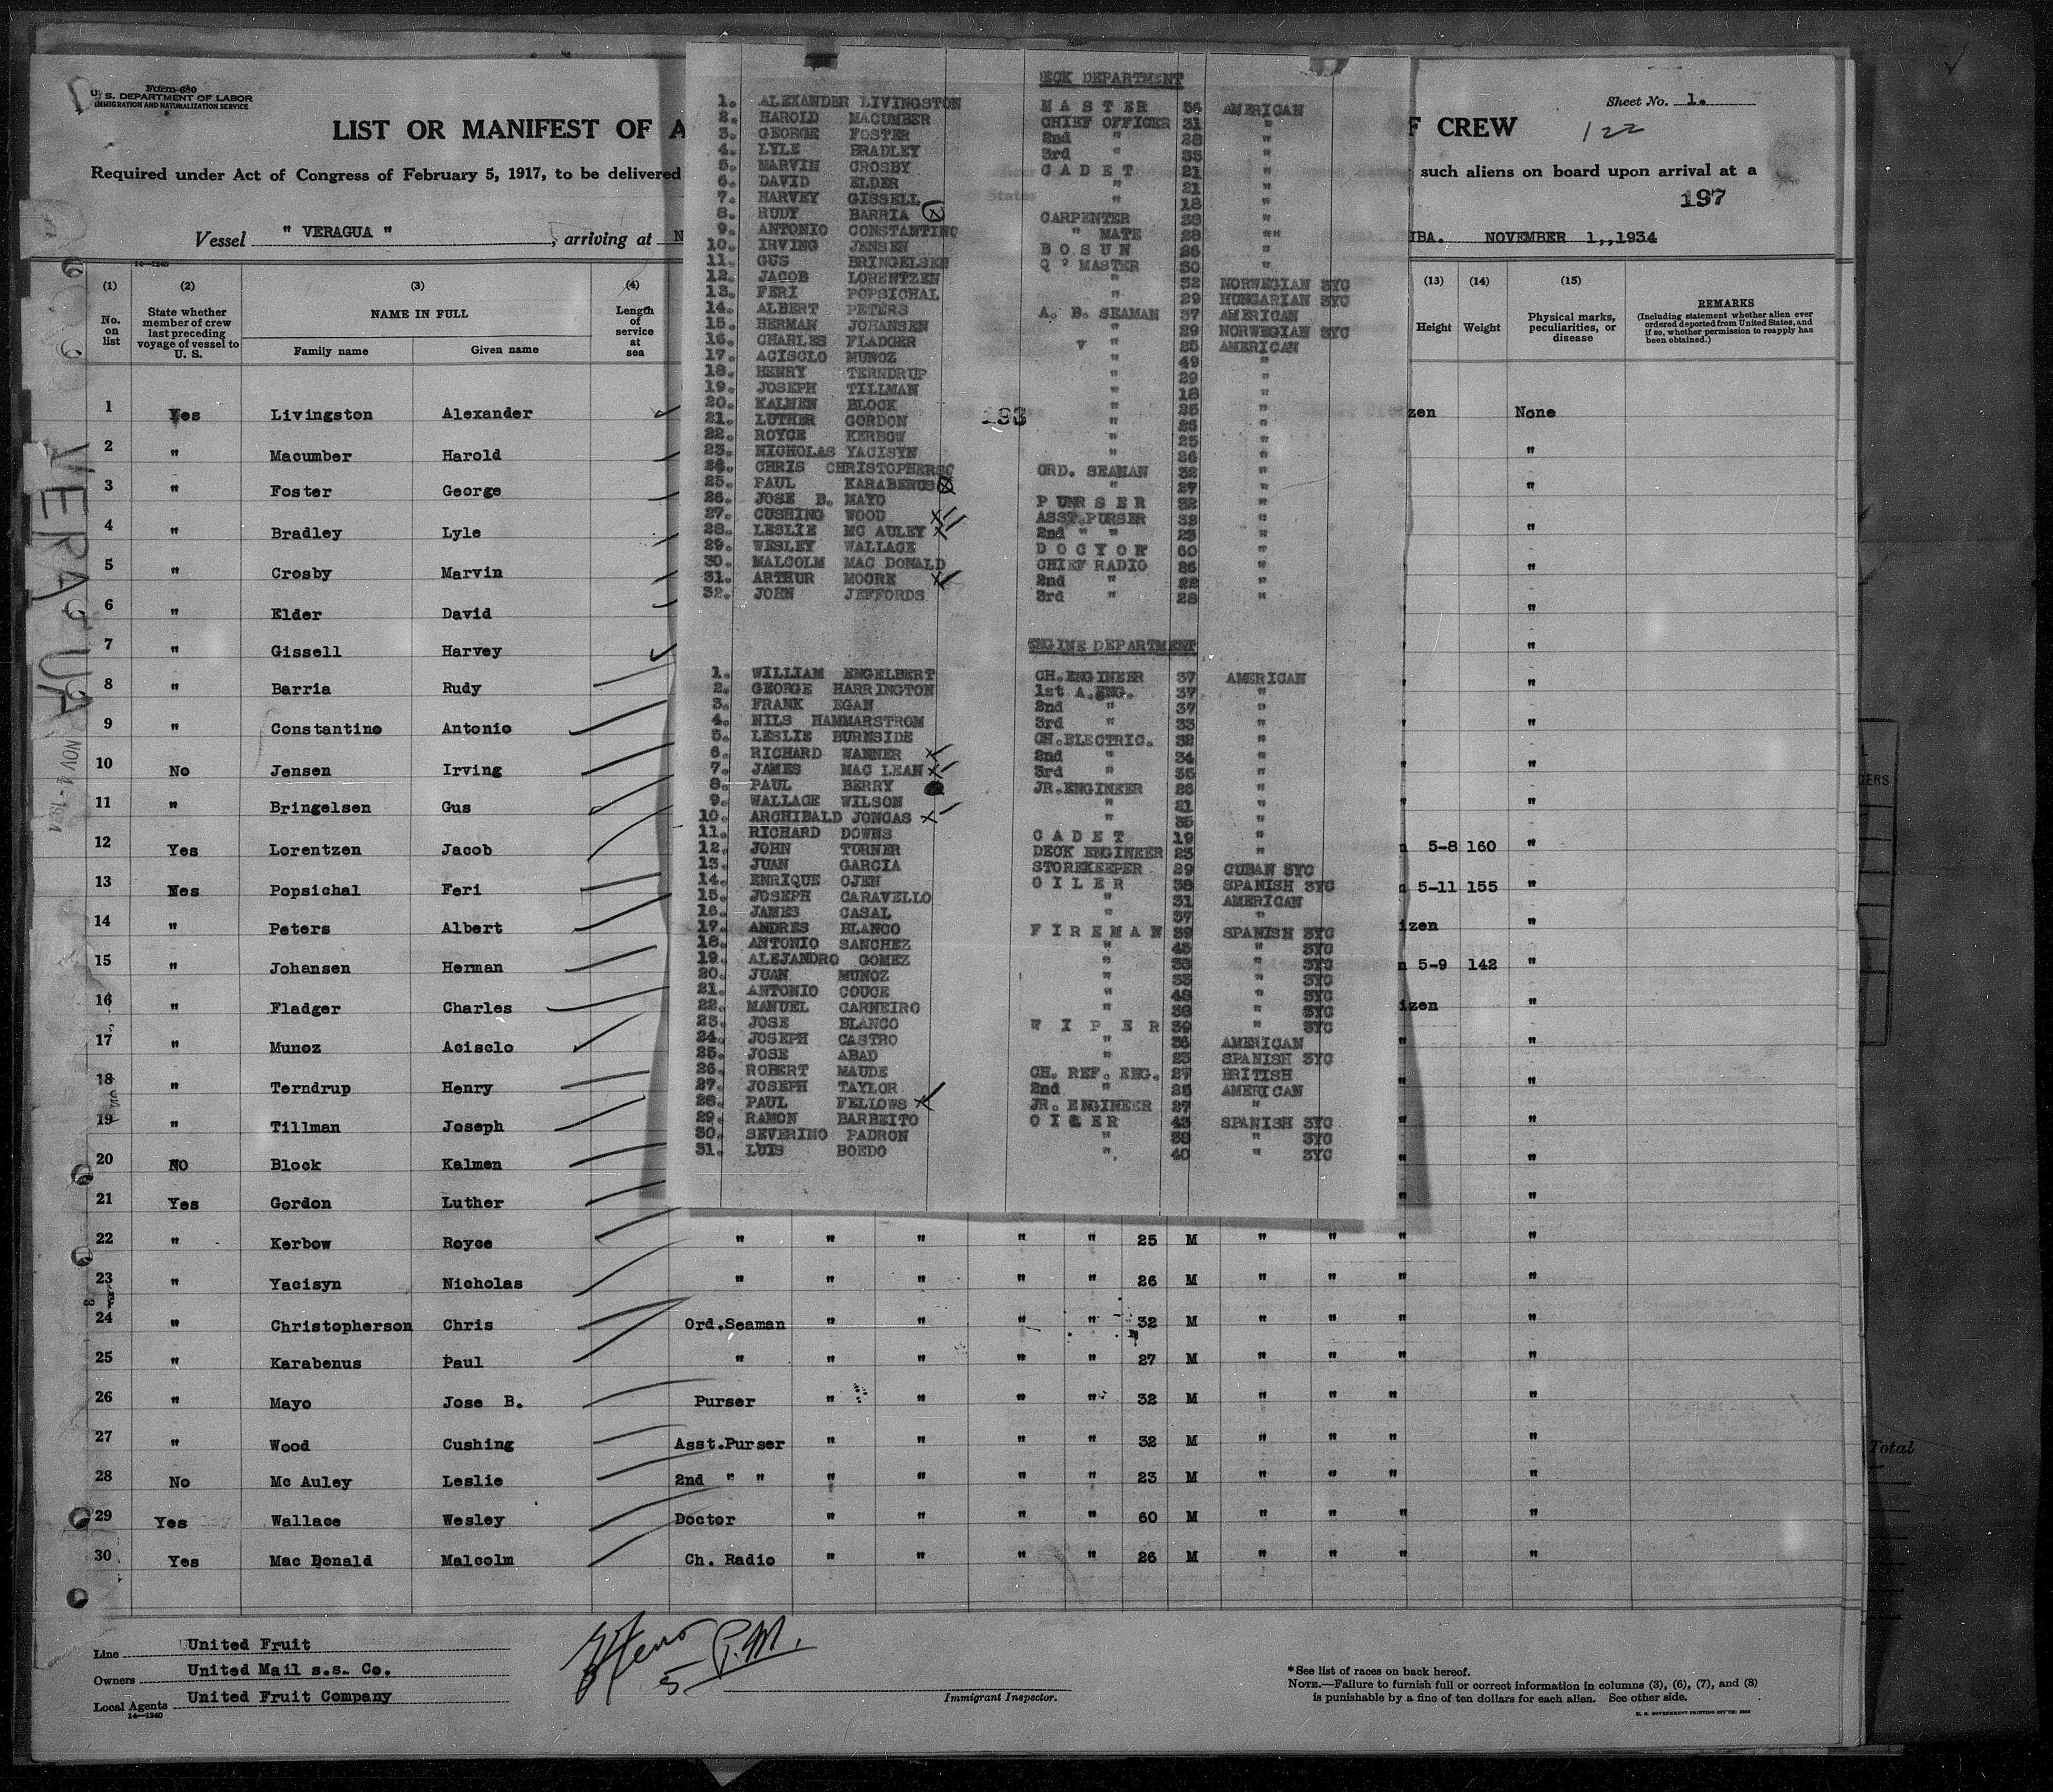 Form 680
U. S. DEPARTMENT OF LABOR
IMMIGRATION AND NATURALIZATION SERVICE
Sheet No. 1.
122
LIST OR MANIFEST OF A
F CREW
Required under Act of Congress of February 5, 1917, to be delivered
such aliens on board upon arrival at a
197
Vessel " VERAGUA " , arriving at N
UBA. NOVEMBER 1,,1934
14—1240
(1) (2) (3) (4) (13) (14) (15)
No. on list
State whether member of crew last preceding voyage of vessel to U. S.
NAME IN FULL
Family name Given name
Length of service at sea
Height Weight
Physical marks, peculiarities, or disease
REMARKS
(Including statement whether alien ever ordered deported from United States, and if so, whether permission to reapply has been obtained.)
1 Yes Livingston Alexander zen None
2 " Macumber Harold "
3 " Foster George "
4 " Bradley Lyle "
5 " Crosby Marvin "
6 " Elder David "
7 " Gissell Harvey " "
8 " Barria Rudy " "
9 " Constantino Antonio " "
10 No Jensen Irving " "
11 " Bringelsen Gus " "
12 Yes Lorentzen Jacob 5-8 160 "
13 Yes Popsichal Feri 5-11 155 "
14 " Peters Albert izen "
15 " Johansen Herman 5-9 142 "
16 " Fladger Charles izen "
17 " Munoz Acisclo " "
18 " Terndrup Henry " "
19 " Tillman Joseph " "
20 NO Block Kalmen " "
21 Yes Gordon Luther " "
22 " Kerbow Royce " " " " " 25 M " " " "
23 " Yacisyn Nicholas " " " " " 26 M " " " "
24 " Christopherson Chris Ord.Seaman " " " " 32 M " " " "
25 " Karabenus Paul " " " " " 27 M " " " "
26 " Mayo Jose B. Purser " " " " 32 M " " " "
27 " Wood Cushing Asst.Purser " " " " 32 M " " " "
28 No Mc Auley Leslie 2nd " " " " " " 23 M " " " "
29 Yes Wallace Wesley Doctor " " " " 60 M " " " "
30 Yes Mac Donald Malcolm Ch. Radio " " " " 26 M " " " "
DECK DEPARTMENT
1. ALEXANDER LIVINGSTON M A S T E R 56 AMERICAN
2. HAROLD MACUMBER CHIEF OFFICER 31 "
3. GEORGE FOSTER 2nd " 28 "
4. LYLE BRADLEY 3rd " 35 "
5. MARVIN CROSBY C A D E T 21 "
6. DAVID ELDER " 21 "
7. HARVEY GISSELL " 18 "
8. RUDY BARRIA CARPENTER 38 "
9. ANTONIO CONSTANTINO " MATE 28 ""
10. IRVING JENSEN B O S U N 26 "
11. GUS BRINGELSEN Q ' MASTER 30 "
12. JACOB LORENTZEN " 32 NORWEGIAN 3YC
13. FERI POPSICHAL " 29 HUNGARIAN 3YC
14. ALBERT PETERS A. B. SEAMAN 37 AMERICAN
15. HERMAN JOHANSEN " 29 NORWEGIAN 3YC
16. CHARLES FLADGER " 25 AMERICAN
17. ACISCLO MUNOZ " 49 "
18. HENRY TERNDRUP " 29 "
19. JOSEPH TILLMAN " 18 "
20. KALMEN BLOCK " 25 "
21. LUTHER GORDON 193 " 26 "
22. ROYCE KERBOW " 25 "
23. NICHOLAS YACISYN " 26 "
24. CHRIS CHRISTOPHERSO ORD. SEAMAN 32 "
25. PAUL KARABENUS " 27 "
26. JOSE B. MAYO P U R S E R 32 "
27. CUSHING WOOD ASST.PURSER 32 "
28. LESLIE MC AULEY 2nd " " 23 "
29. WESLEY WALLACE D O C Y O R 60 "
30. MALCOLM MAC DONALD CHIEF RADIO 26 "
31. ARTHUR MOORE 2nd " 22 "
32. JOHN JEFFORDS 3rd " 28 "
ENGINE DEPARTMENT
1. WILLIAM ENGELBERT CH.ENGINEER 37 AMERICAN
2. GEORGE HARRINGTON 1st A.ENG. 37 "
3. FRANK EGAN 2nd " 37 "
4. NILS HAMMARSTROM 3rd " 33 "
5. LESLIE BURNSIDE CH.ELECTRIC. 32 "
6. RICHARD WANNER 2nd " 34 "
7. JAMES MAC LEAN 3rd " 36 "
8. PAUL BERRY JR.ENGINEER 26 "
9. WALLACE WILSON " 21 "
10. ARCHIBALD JONCAS " 35 "
11. RICHARD DOWNS C A D E T 19 "
12. JOHN TURNER DECK ENGINEER 23 "
13. JUAN GARCIA STOREKEEPER 29 CUBAN 3YC
14. ENRIQUE OJEN O I L E R 38 SPANISH 3YC
15. JOSEPH CARAVELLO " 31 AMERICAN
16. JAMES CASAL " 37 "
17. ANDRES BLANCO F I R E M A N 39 SPANISH 3YC
18. ANTONIO SANCHEZ " 45 " 3YC
19. ALEJANDRO GOMEZ " 33 " 3YC
20. JUAN MUNOZ " 33 " 3YC
21. ANTONIO COUCE " 48 " 3YC
22. MANUEL CARNEIRO " 38 " 3YC
23. JOSE BLANCO W I P E R 39 " 3YC
24. JOSEPH CASTRO " 36 AMERICAN
25. JOSE ABAD " 23 SPANISH 3YC
26. ROBERT MAUDE CH. REF. ENG. 27 BRITISH
27. JOSEPH TAYLOR 2nd " 25 AMERICAN
28. PAUL FELLOWS JR. ENGINEER 27 "
29. RAMON BARBEITO O I L E R 43 SPANISH 3YC
30. SEVERINO PADRON " 38 " 3YC
31. LUIS BOEDO " 40 " 3YC
VERAGUA
NOV 4 - 1934
Total
Line United Fruit
Owners United Mail s.s. Co.
Local Agents United Fruit Company
14—1240
5 P.M.
Immigrant Inspector.
*See list of races on back hereof.
NOTE.—Failure to furnish full or correct information in columns (3), (6), (7), and (8)
is punishable by a fine of ten dollars for each alien. See other side.
U. S. GOVERNMENT PRINTING OFFICE